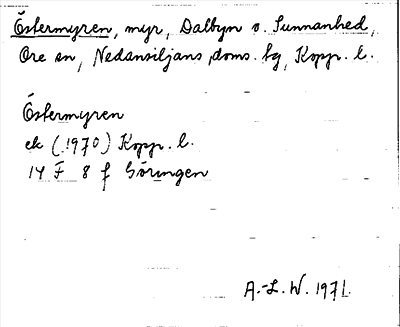 Östermyren, myr, Dalbyn o. Sunnanhed,
Ore sn, Nedansiljans doms. tg, Kopp. l.
Östermyren
ek (1970) Kopp. l.
14 F 8 f Göringen
A.-L. W. 1971.